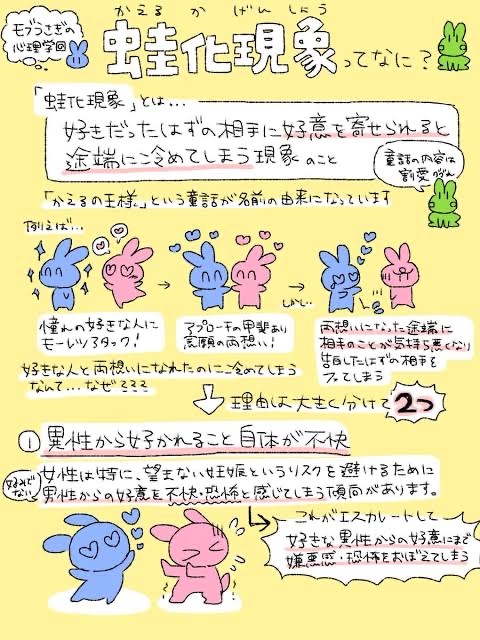 モブうさぎの
心理学回
かえるかげんしょう
蛙化現象ってなに?
「蛙化現象」とは…
好きだったはずの相手に好意を寄せられると
途端に冷めてしまう現象のこと
童話の内容は
割愛
「かえるの王様」という童話が名前の由来になっています
例えば…
しかし…
憧れの好きな人に
モーレツアタック!
アプローチの甲斐あり
念願の両想い!
両想いになった途端に
相手のことが気持ち悪くなり
告白したはずの相手を
フッてしまう
好きな人と両想いになれたのに冷めてしまう
なんて…なぜ???
理由は大きく分けて2つ
① 異性から好かれること自体が不快
好みでない
女性は特に、望まない妊娠というリスクを避けるために
男性からの好意を不快・恐怖と感じてしまう傾向があります。
これがエスカレートして
好きな異性からの好意にまで
嫌悪感・恐怖をおぼえてしまう